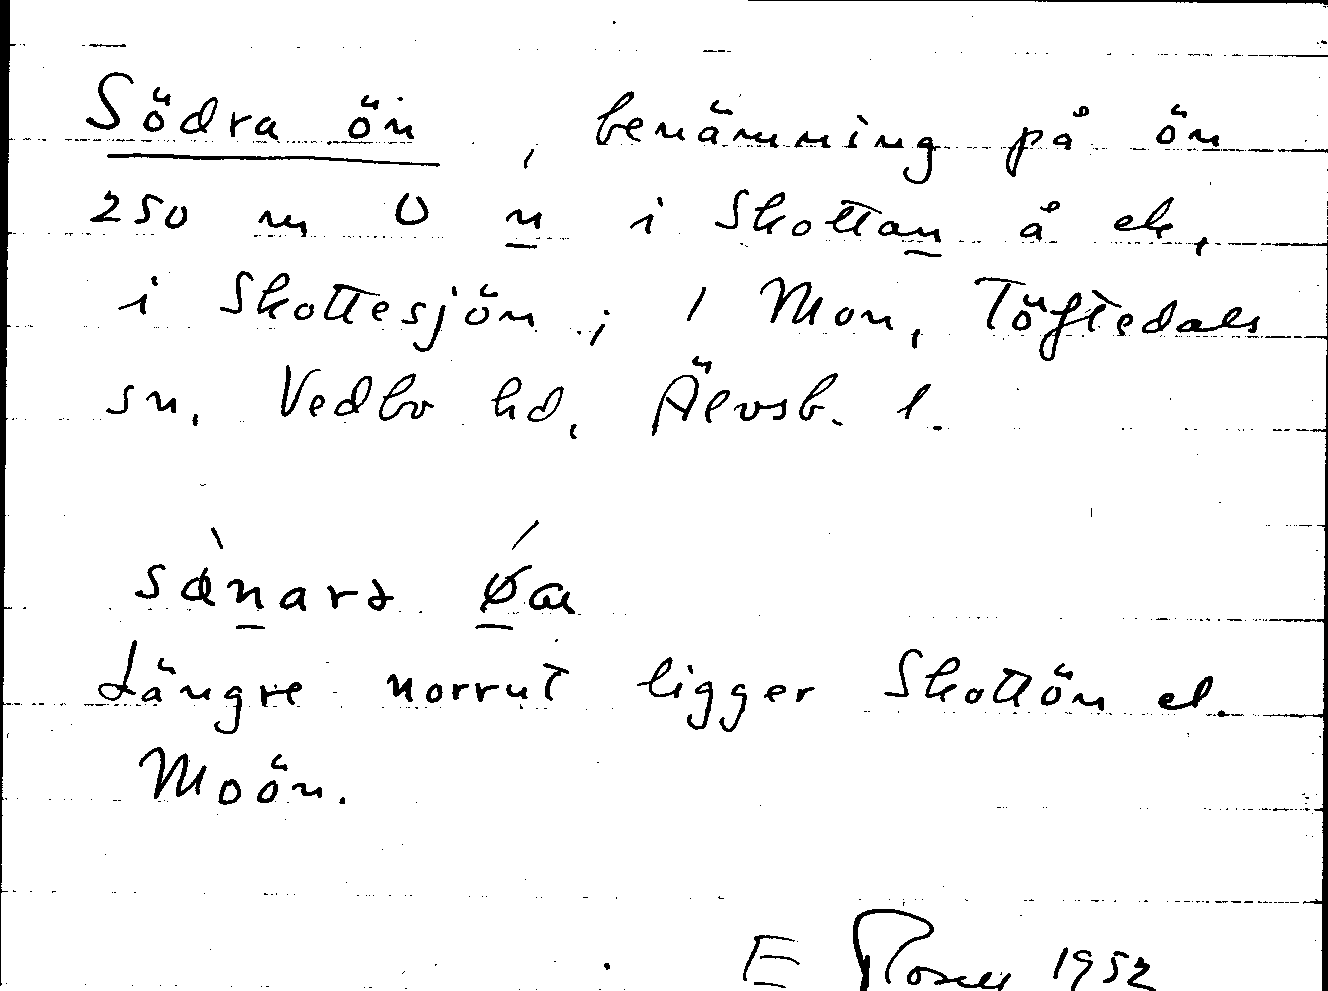 Södra ön, benämning på ön
250 m O n i Skottan å el.
i Skottesjön; 1 Mon, Töftedals
sn, Vedbo hd, Älvsb. l.
Längre norrut ligger Skottön el.
Moön.
E 1952